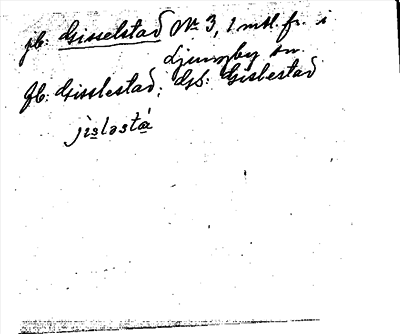 jb: Gisselstad Nr 3, 1 mtl. fr. i
Ljungby sn.
Jb: Gisslestad; Gd: Gislestad
jìsləstá